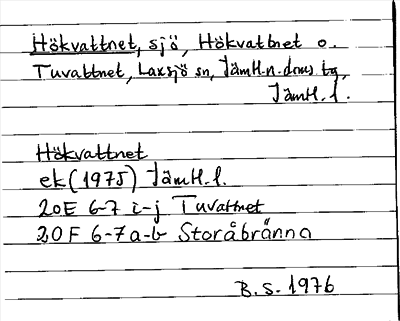 Hökvattnet, sjö, Hökvattnet o.
Tuvattnet, Laxsjö sn, Jämtl.n.doms tg,
Jämtl. l.
Hökvattnet
ek (1975) Jämtl. l.
20E 6-7 i-j Tuvattnet
20F 6-7 a-b Storåbränna
B.S. 1976